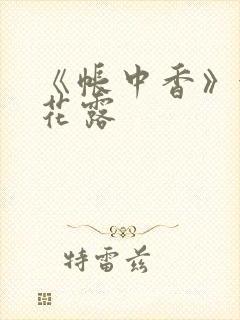 《帐中香》
花露
特雷兹